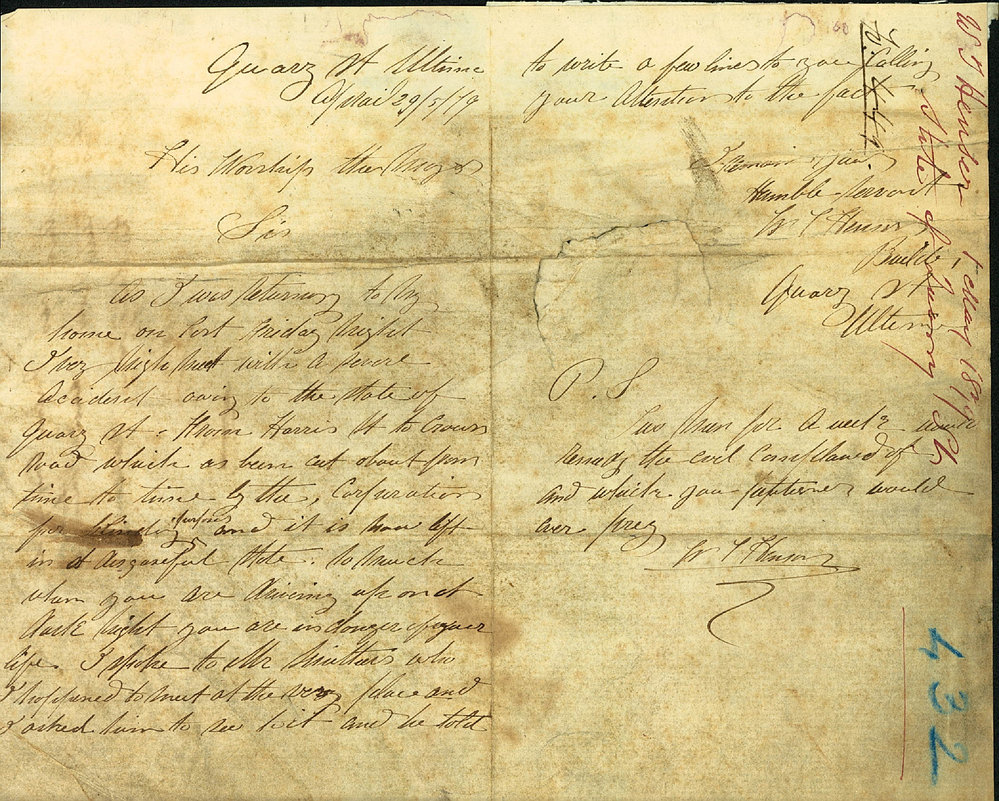 Quarry St Ultimo
29/5/79
His Worship the Mayor
Sir
As I was returning to my
home on last Friday Night
I very nigh met with a severe
Accident owing to the state of
Quarry St. From Harris St to Crown
Road which as been cut about from
time to time by the Corporation
for purposes and it is now left
in a disgraceful state. So much
when you are driving up on a
dark Night you are in danger of your
life. I spoke to Mr who
I happened to meet at the very place and
I asked him to see to it and he told
to write a few lines to you Calling
your Attention to the fact
I remain your
Humble Servant
W T Henson
Builder
Quarry St
Ultimo
P. S
Two Men for A week would
Remedy the evil Complained of
and which your petitioner would
ever prey
W T Henson
W T Henson
1879
State of Quarry St.
432